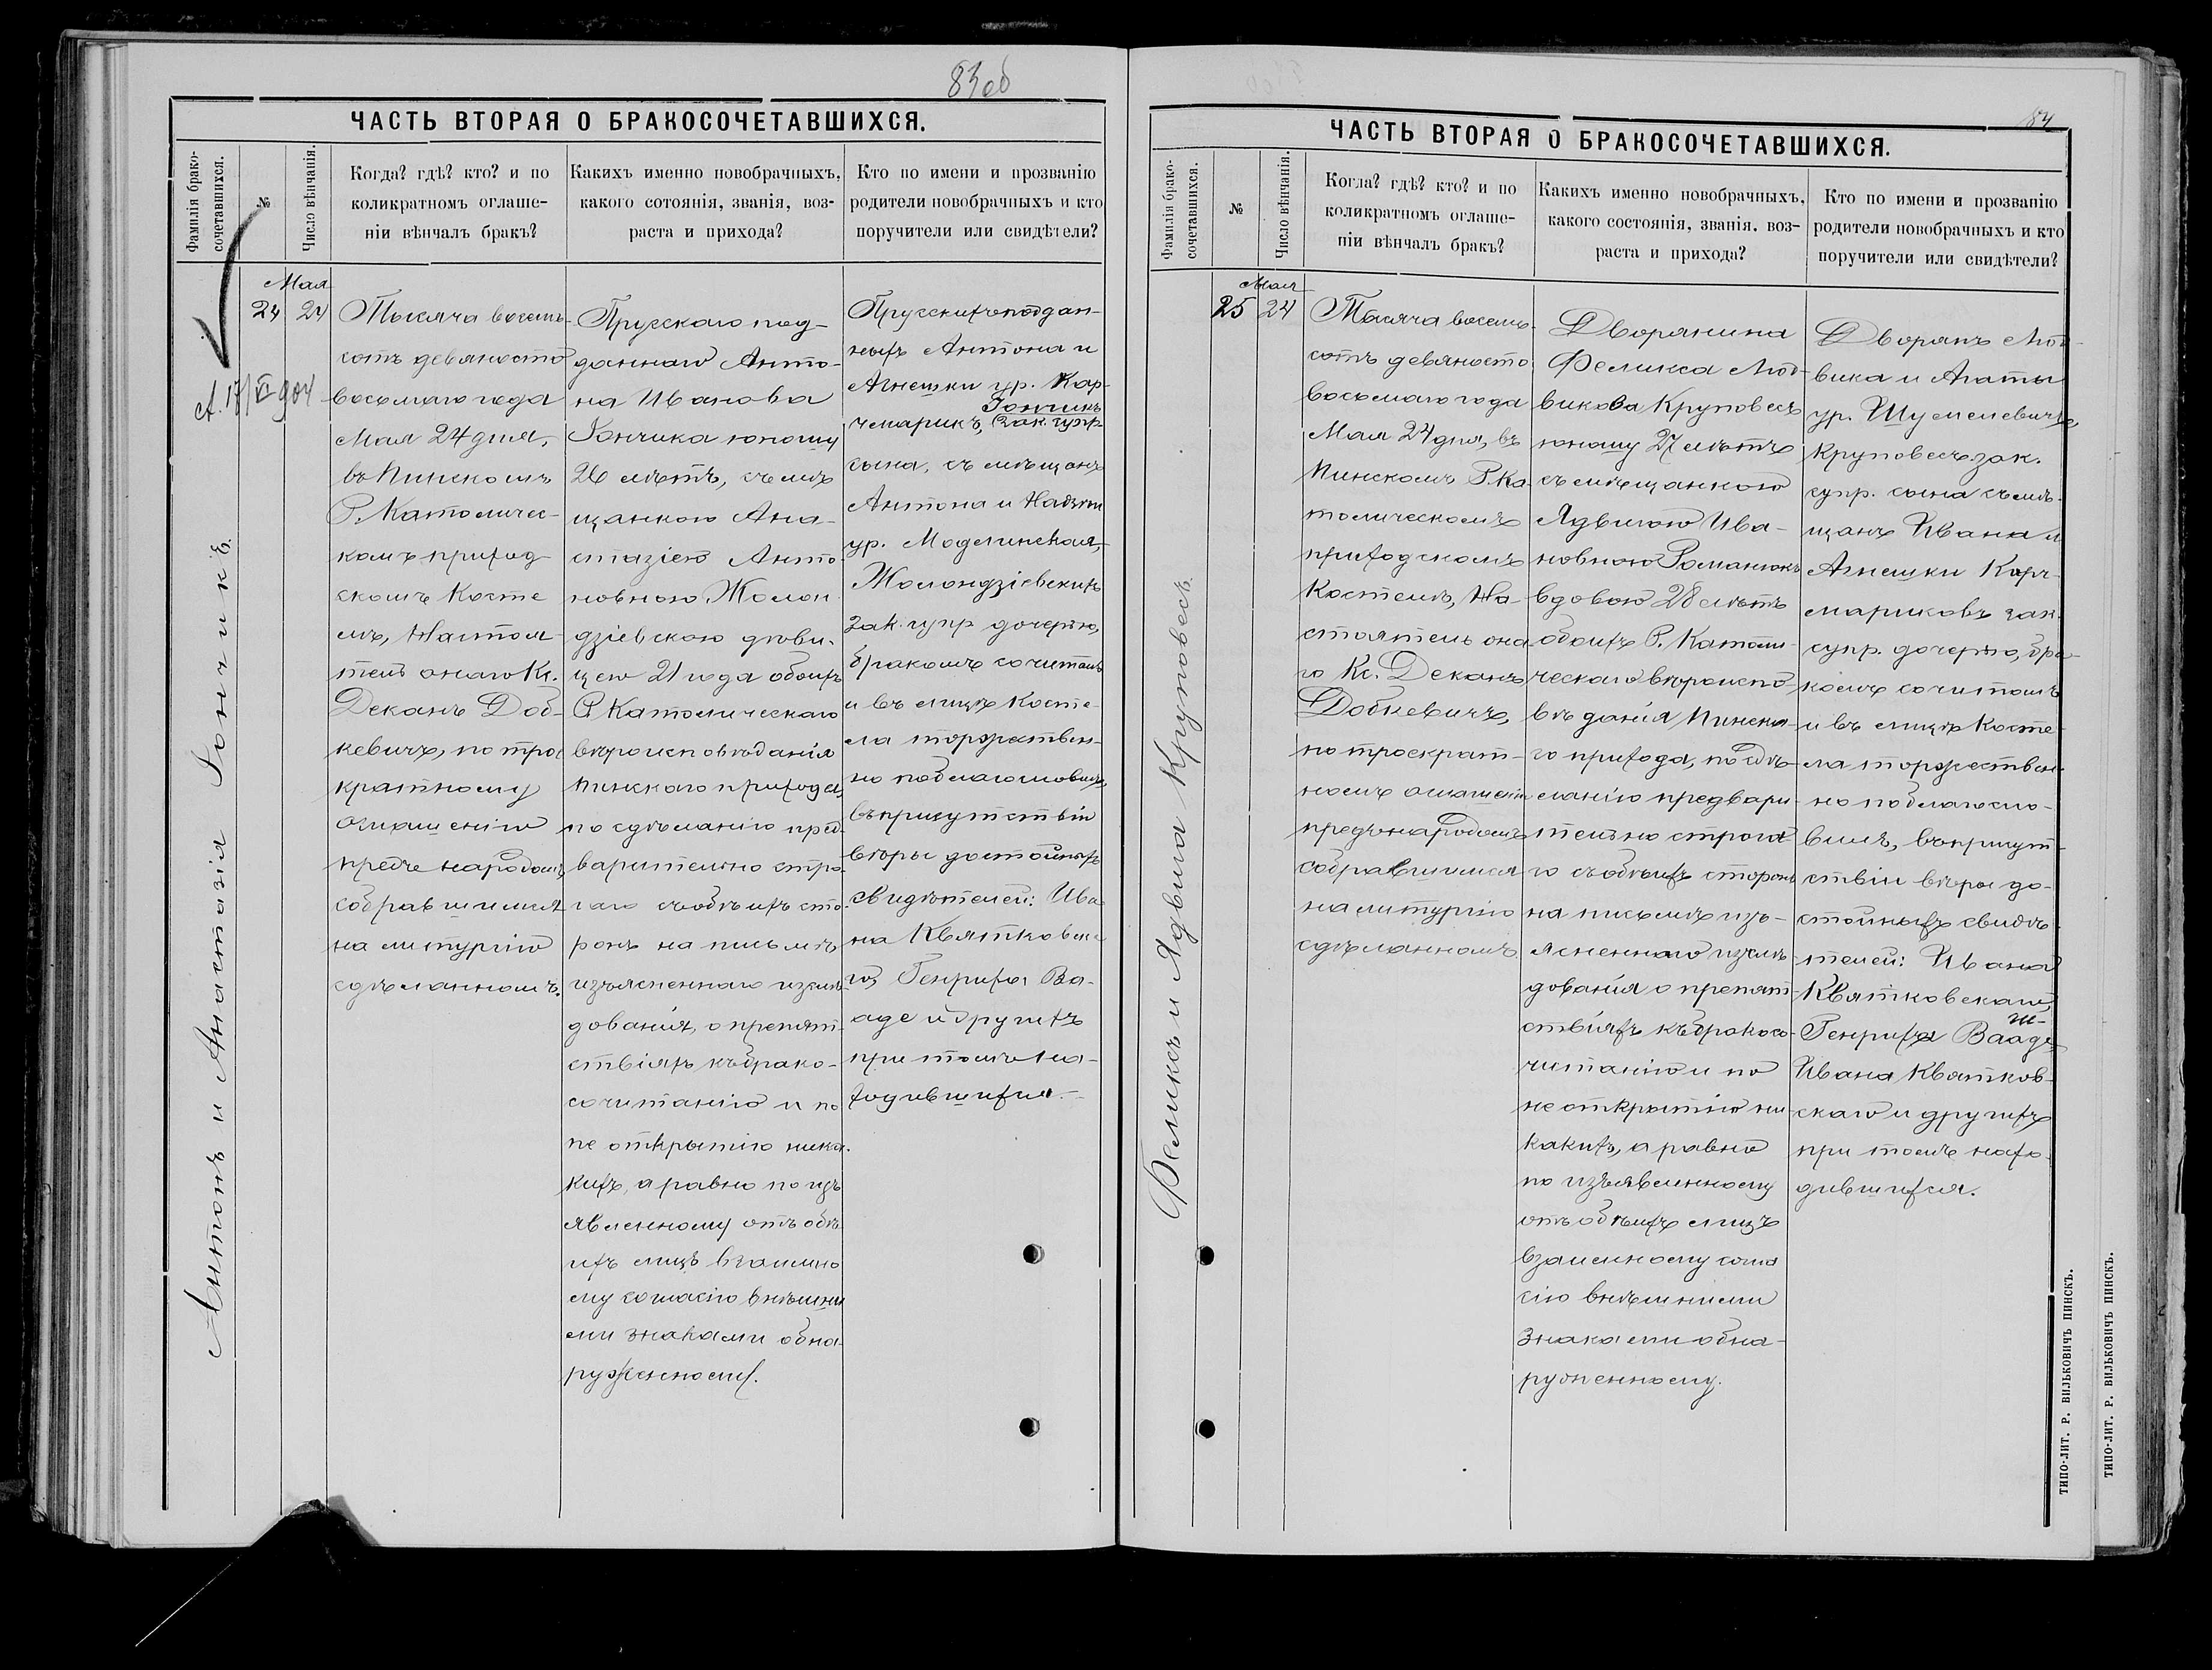 83об
ЧАСТЬ ВТОРАЯ О БРАКОСОЧЕТАВШИХСЯ.
Фамилія брако-
сочетавшихся.
№
Число вѣнчанія.
Когда? гдѣ? кто? и по
коликратномъ оглаше-
ніи вѣнчалъ бракъ?
Какихъ именно новобрачныхъ,
какого сотоянія, званія, воз-
раста и прихода?
Кто по имени и прозванію
родители новобрачныхъ и кто
поручители или свидѣтели?
Антонъ и Анастазія Гончикѣ
Мая
24 24
Тысяча восемь-
сотъ девяносто
восьмаго года
Мая 24 дня,
въ Пинскомъ
Р. Католичес-
комъ приход
скомъ Косте
лѣ, Настоя-
тель онаго Кс.
Деканъ Доб-
кевичъ, по трое
кратному
оглашенію
предъ народомъ,
собравшимся
на литургію
сдѣланномъ.
Прусскаго под-
даннаго Анто-
на Иванова
Гончика юношу
26 лѣтъ, съ мѣ
щанкою Ана-
стазіею Анто
новною Жолон
дзіевскою дѣви-
цею 21 года обоихъ
Р. Католическаго
вѣроисповѣданія
Пинскаго прихода,
по сдѣланію пред-
варительно стро-
гаго съ обѣихъ сто-
ронъ на письмѣ,
изъясненнаго изслѣ-
дованія, о препят-
ствіяхъ къ брако-
сочитанію и по
не открытію ника-
кихъ, а равно по изъ
явленному отъ обѣ
ихъ лицъ взаимно
му согласію внѣшни
ми знаками обна-
руженному.
Прусскихъ поддан-
ныхъ Антона и
Агнешки ур. Кар-
Гончикъ
чмарикъ, зак. супр
сына, съ мѣщанъ
Антона и
ур. Моделинская,
Жолондзіевскихъ
зак. супр дочерью,
бракомъ сочиталъ
и въ лицѣ Косте-
ла торжествен-
но поблагословилъ,
въ присутствіи
вѣры достойныхъ
свидѣтелей: Ива-
на Квятковска-
го, Генриха Ва-
аде и другихъ
при томъ на-
ходившихся.
84
ЧАСТЬ ВТОРАЯ О БРАКОСОЧЕТАВШИХСЯ.
Фамилія брако-
сочетавшихся.
№
Число вѣнчанія.
Когда? гдѣ? кто? и по
коликратномъ оглаше-
ніи вѣнчалъ бракъ?
Какихъ именно новобрачныхъ,
какого состоянія, званія. воз-
раста и прихода?
Кто по имени и прозванію
родители новобрачныхъ и кто
поручители или свидѣтели?
Феликсъ и Ядвига Круповесъ
Мая
25 24
Тысяча восемь-
сотъ девяносто
восьмаго года
Мая 24 дня, въ
Пинскомъ Р. Ка-
толическомъ
приходскомъ
Костелѣ, На-
стоятель она
го Кс. Деканъ
Добкевичъ,
по троекрат-
номъ оглашеніи
предъ народомъ
собравшимся
на литургію
сдѣланномъ
Дворянина
Феликса Люд-
викова Круповесъ
юношу 27 лѣтъ
съ мѣщанкою
Ядвигою Ива-
новною Романюкъ
вдовою 28 лѣтъ
обоихъ Р. Католи-
ческаго вѣроиспо-
вѣданія Пинска-
го прихода, по сдѣ-
ланію предвари-
тельно строга
го съ обѣихъ сторонъ
на письмѣ изъ-
ясненнаго изслѣ
дованія о препят
ствіяхъ къ бракосо-
читанію и по
не открытію ни
какихъ, а равно
по изъявленному
отъ обѣихъ лицъ
взаимному согла
сію внѣшними
знаками обна-
руженному.
Дворянъ Люд-
вика и Агаты
ур.
Круповесъ зак.
супр. сына съ мѣ-
щанъ Ивана и
Агнешки Карч-
мариковъ зак.
супр. дочерью, бра-
комъ сочиталъ
и въ лицѣ Косте-
ла торжествен-
но поблагосло-
вилъ, въ присут-
ствіи вѣры до-
стойныхъ свидѣ
телей: Ивана
Квятковскаго,
Генриха Вааде,
Ивана Квятков-
скаго и другихъ
при томъ нахо-
дившихся.
ТИПО-ЛИТ. Р. ВИЛЬКОВИЧЪ ПИНСКЪ.
ТИПО-ЛИТ. Р. ВИЛЬКОВИЧЪ ПИНСКЪ.